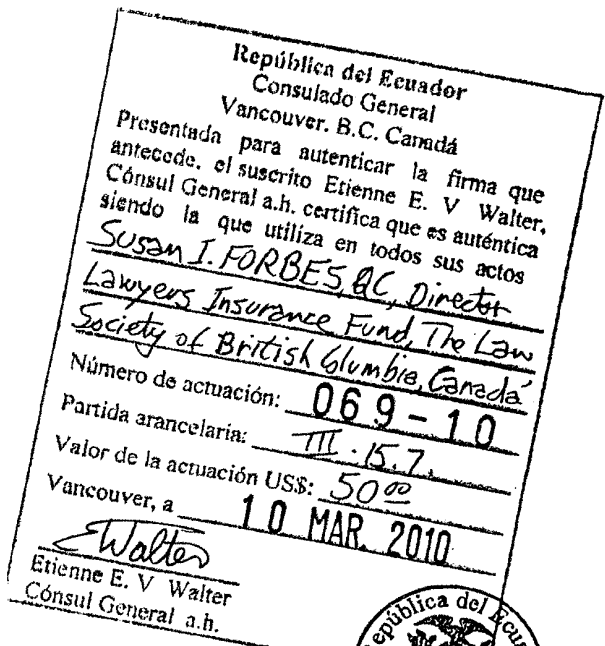 República del Ecuador
Consulado General
Vancouver. B.C. Canadá
Presentada para autenticar la firma que
antecede, el suscrito Etienne E. V Walter,
Cónsul General a.h. certifica que es auténtica
siendo la que utiliza en todos sus actos
Susan I. FORBES, QC, Director
Lawyers Insurance Fund, The Law
Society of British Columbia, Canadá
Número de actuación: 069-10
Partida arancelaria: III.15.7.
Valor de la actuación US$: 50 00
Vancouver, a 10 MAR. 2010
EWalter
Etienne E. V Walter
Cónsul General a.h.
República del Ecu